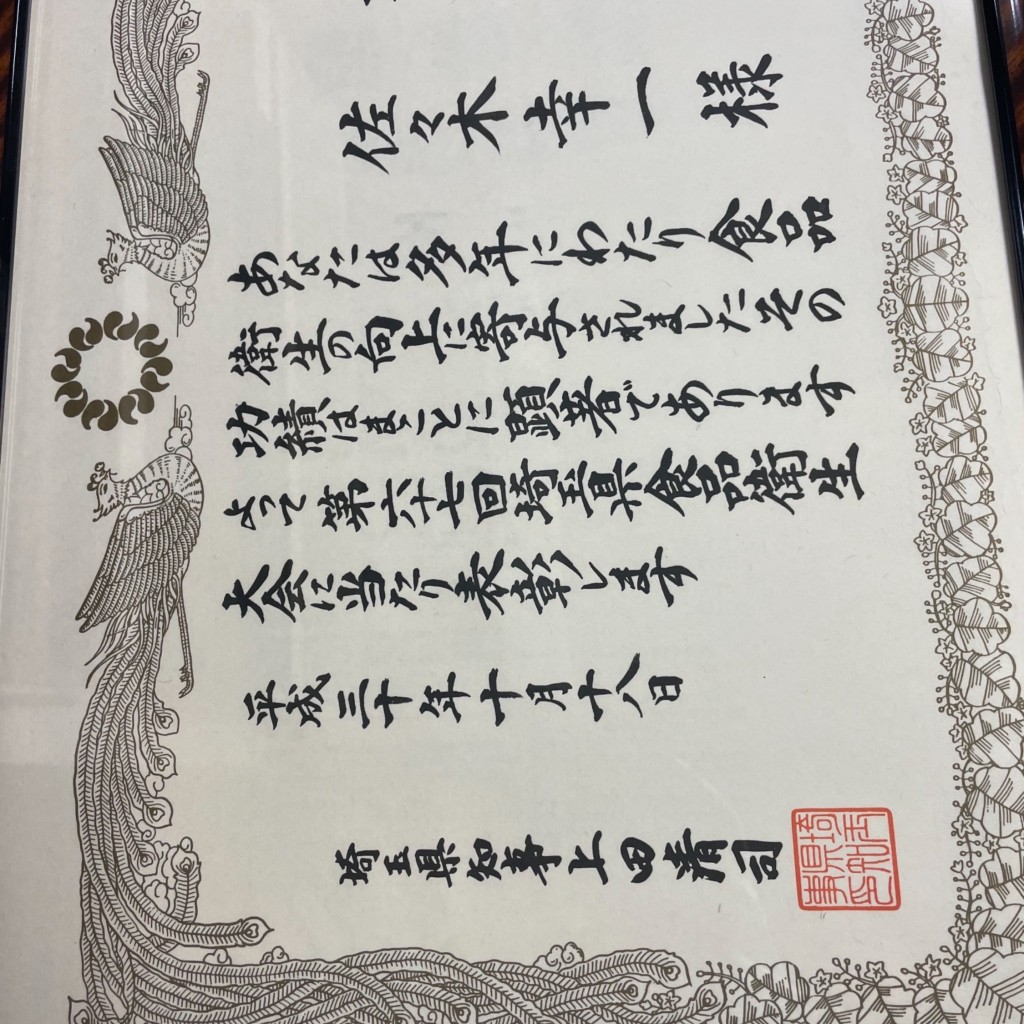 佐々木幸一様
あなたは多年にわたり食品
衛生の向上に寄与されましたその
功績はまことに顕著であります
よって第六十七回埼玉県食品衛生
大会に当たり表彰します
平成三十年十月十八日
埼玉県知事上田清司